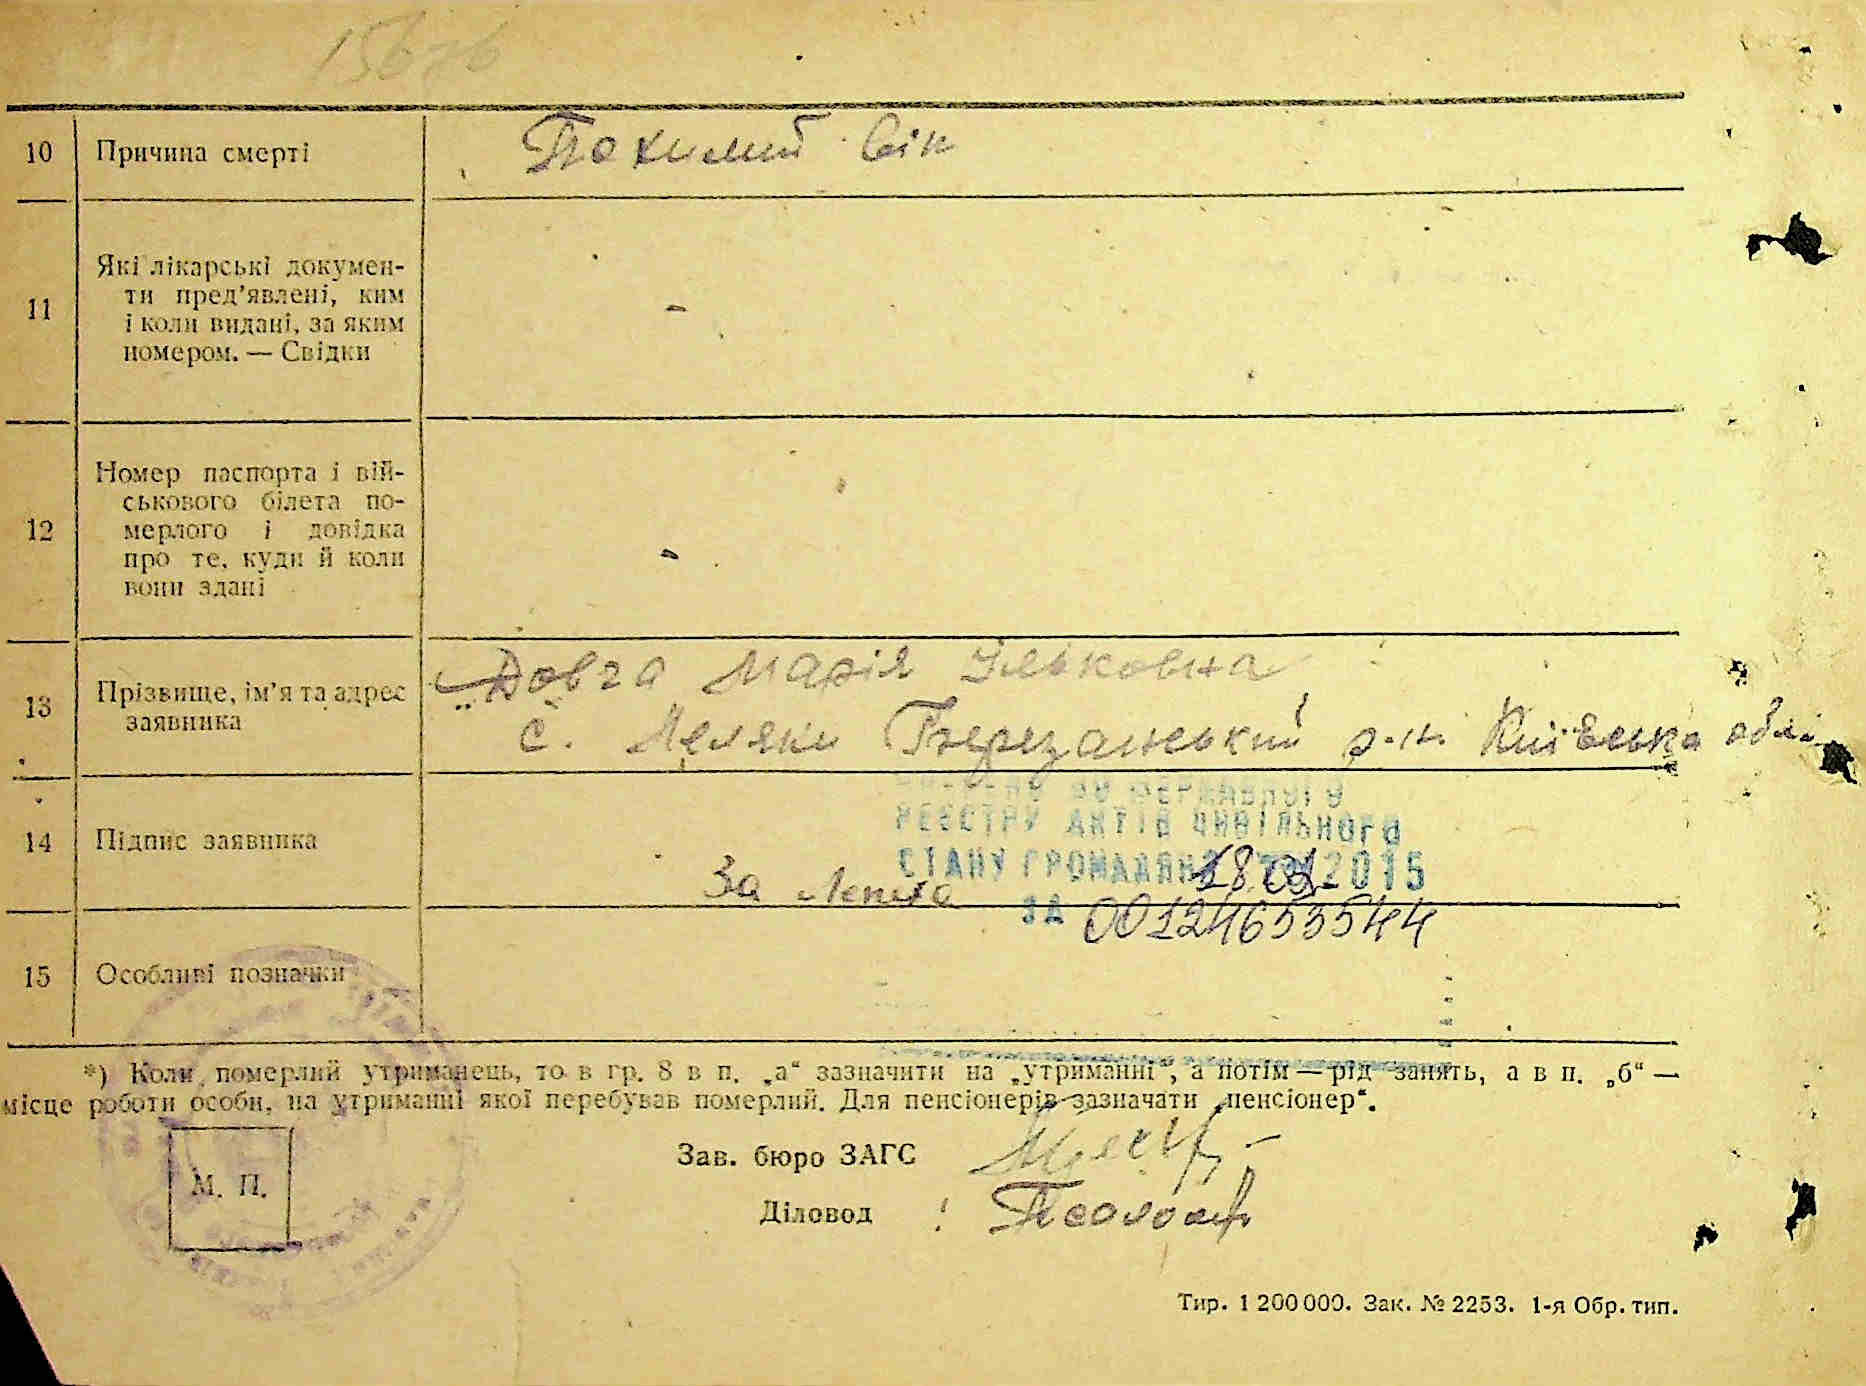 10 Причина смерті Похилий вік
11 Які лікарські докумен-
ти пред’явлені, ким
і коли видані, за яким
номером. — Свідки -
12 Номер паспорта і вій-
ськового білета по-
мерлого і довідка
про те, куди й коли
вони здані -
13 Прізвище, ім’я та адрес
заявника
Довга Марія Ільковна
с. Лехняки Березанський р-н. Київська обл.
14 Підпис заявника
За
ДО ДЕРЖАВНОГО
РЕЄСТРУ АКТІВ ЦИВІЛЬНОГО
СТАНУ ГРОМАДЯН 2015
ЗА 00124653544
15 Особливі позначки
*) Коли померлий утриманець, то в гр. 8 в п. „а“ зазначити на „утриманні“, а потім — рід занять, а в п. „б“ —
місце роботи особи, на утриманні якої перебував померлий. Для пенсіонерів зазначати „пенсіонер“.
Зав. бюро ЗАГС
М. П.
Діловод
Тир. 1 200 000. Зак. № 2253. 1-я Обр. тип.